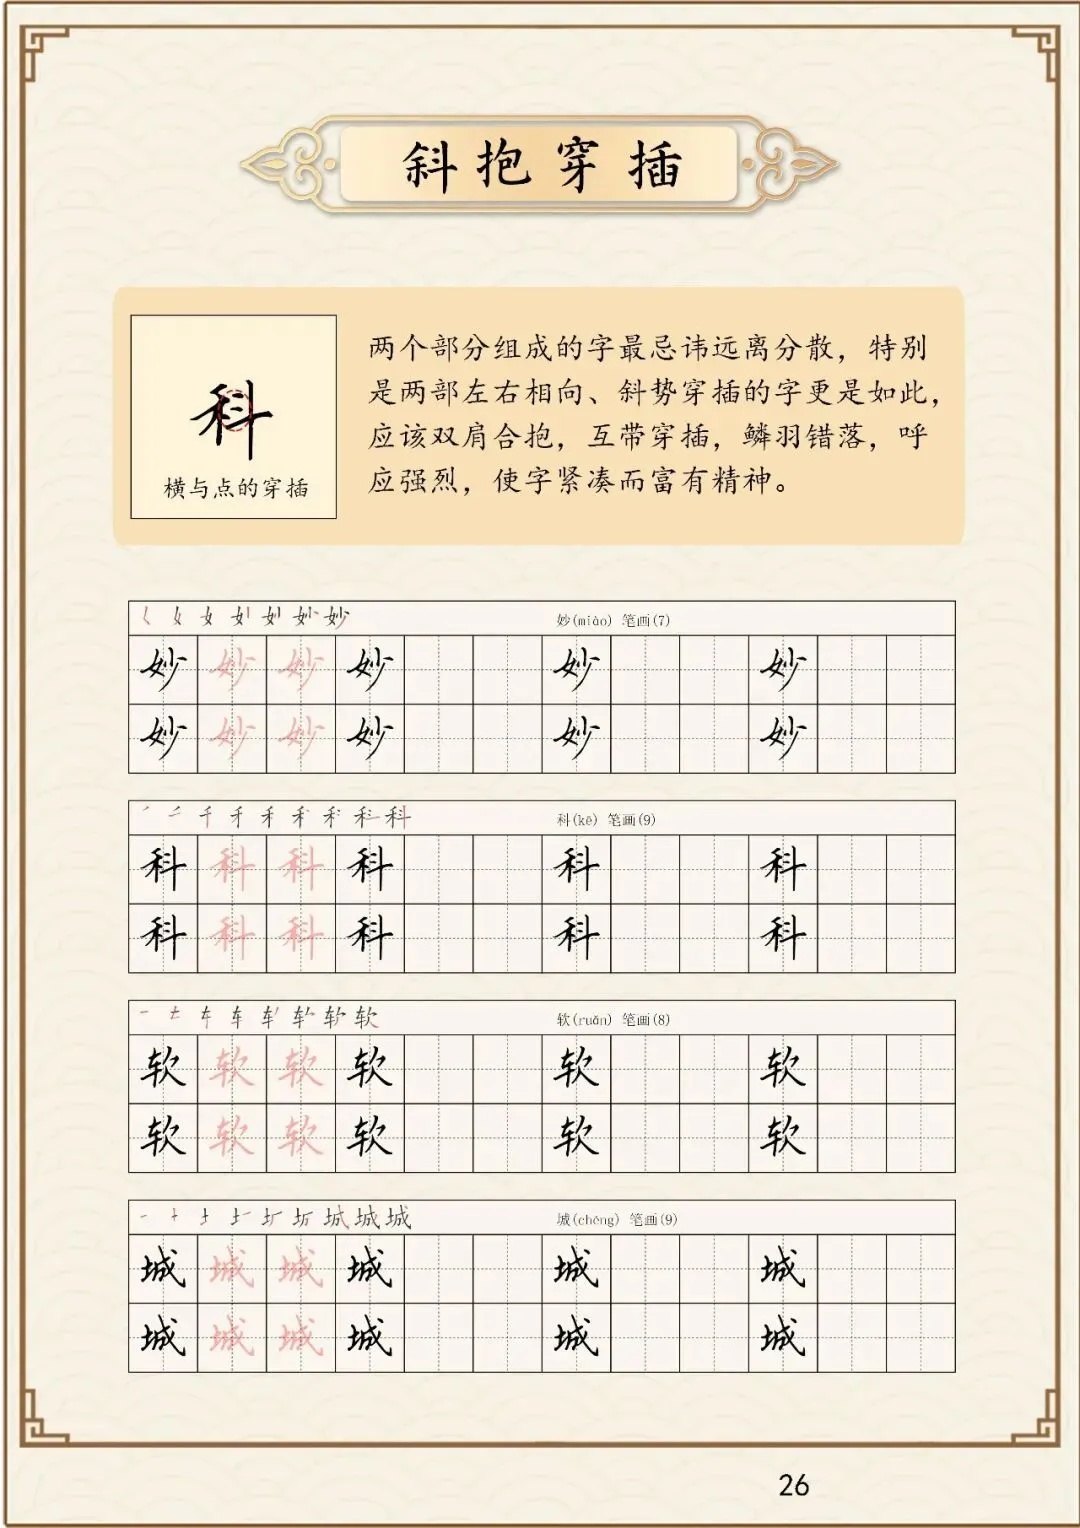 斜抱穿插
科
横与点的穿插
两个部分组成的字最忌讳远离分散，特别
是两部左右相向、斜势穿插的字更是如此，
应该双肩合抱，互带穿插，鳞羽错落，呼
应强烈，使字紧凑而富有精神。
妙(miào) 笔画(7)
妙 妙 妙 妙 妙 妙
妙 妙 妙 妙 妙 妙
科(kē) 笔画(9)
科 科 科 科 科 科
科 科 科 科 科 科
软(ruǎn) 笔画(8)
软 软 软 软 软 软
软 软 软 软 软 软
城(chéng) 笔画(9)
城 城 城 城 城 城
城 城 城 城 城 城
26